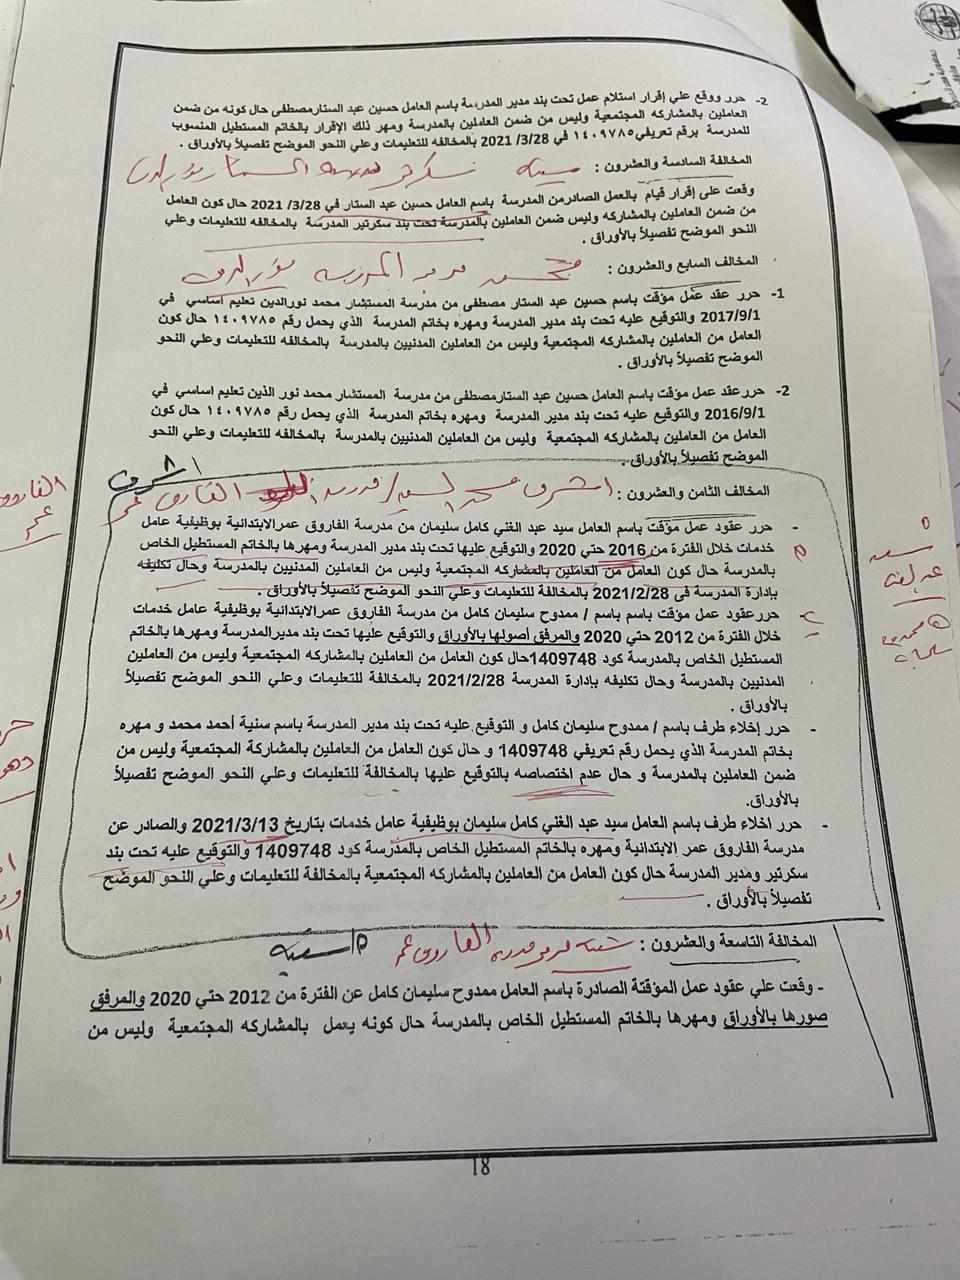 2- حرر ووقع علي إقرار استلام عمل تحت بند مدير المدرسة باسم العامل حسين عبد الستارمصطفى حال كونه من ضمن
العاملين بالمشاركه المجتمعية وليس من ضمن العاملين بالمدرسة ومهر ذلك الإقرار بالخاتم المستطيل المنسوب
للمدرسة برقم تعريفي١٤٠٩٧٨٥ في 3/28/ 2021 بالمخالفه للتعليمات وعلي النحو الموضح تفصيلاً بالأوراق .
المخالفة السادسة والعشرون : سكرتير مدرسة
وقعت على إقرار قيام بالعمل الصادرمن المدرسة باسم العامل حسين عبد الستار في 3/28/ 2021 حال كون العامل
من ضمن العاملين بالمشاركه وليس ضمن العاملين بالمدرسة تحت بند سكرتير المدرسة بالمخالفه للتعليمات وعلي
النحو الموضح تفصيلاً بالأوراق .
المخالف السابع والعشرون : مدير المدرسة نور الدين
1- حرر عقد عمل مؤقت باسم حسين عبد الستار مصطفى من مدرسة المستشار محمد نورالدين تعليم اساسي في
2017/9/1 والتوقيع عليه تحت بند مدير المدرسة ومهره بخاتم المدرسة الذي يحمل رقم ١٤٠٩٧٨٥ حال كون
العامل من العاملين بالمشاركه المجتمعية وليس من العاملين المدنيين بالمدرسة بالمخالفه للتعليمات وعلي النحو
الموضح تفصيلاً بالأوراق .
2- حررعقد عمل مؤقت باسم العامل حسين عبد الستارمصطفى من مدرسة المستشار محمد نور الذين تعليم اساسي في
2016/9/1 والتوقيع عليه تحت بند مدير المدرسة ومهره بخاتم المدرسة الذي يحمل رقم ١٤٠٩٧٨٥ حال كون
العامل من العاملين بالمشاركه المجتمعية وليس من العاملين المدنيين بالمدرسة بالمخالفه للتعليمات وعلي النحو
الموضح تفصيلاً بالأوراق .
أشرف
المخالف الثامن والعشرون : أشرف محمد السيد / مدرسة الفاروق عمر
- حرر عقود عمل مؤقت باسم العامل سيد عبد الغني كامل سليمان من مدرسة الفاروق عمرالابتدائية بوظيفية عامل
خدمات خلال الفترة من 2016 حتي 2020 والتوقيع عليها تحت بند مدير المدرسة ومهرها بالخاتم المستطيل الخاص
بالمدرسة حال كون العامل من العاملين بالمشاركه المجتمعية وليس من العاملين المدنيين بالمدرسة وحال تكليفه
بإدارة المدرسة فى 2021/2/28 بالمخالفه للتعليمات وعلي النحو الموضح تفصيلاً بالأوراق .
- حررعقود عمل مؤقت باسم باسم / ممدوح سليمان كامل من مدرسة الفاروق عمرالابتدائية بوظيفية عامل خدمات
خلال الفترة من 2012 حتي 2020 والمرفق أصولها بالأوراق والتوقيع عليها تحت بند مديرالمدرسة ومهرها بالخاتم
المستطيل الخاص بالمدرسة كود 1409748حال كون العامل من العاملين بالمشاركه المجتمعية وليس من العاملين
المدنيين بالمدرسة وحال تكليفه بإدارة المدرسة 2021/2/28 بالمخالفة للتعليمات وعلي النحو الموضح تفصيلاً
بالأوراق .
- حرر إخلاء طرف باسم / ممدوح سليمان كامل و التوقيع عليه تحت بند مدير المدرسة باسم سنية أحمد محمد و مهره
بخاتم المدرسة الذي يحمل رقم تعريفي 1409748 و حال كون العامل من العاملين بالمشاركة المجتمعية وليس من
ضمن العاملين بالمدرسة و حال عدم اختصاصه بالتوقيع عليها بالمخالفة للتعليمات وعلي النحو الموضح تفصيلاً
بالأوراق.
- حرر اخلاء طرف باسم العامل سيد عبد الغني كامل سليمان بوظيفية عامل خدمات بتاريخ 2021/3/13 والصادر عن
مدرسة الفاروق عمر الابتدائية ومهره بالخاتم المستطيل الخاص بالمدرسة كود 1409748 والتوقيع عليه تحت بند
سكرتير ومدير المدرسة حال كون العامل من العاملين بالمشاركه المجتمعية بالمخالفة للتعليمات وعلي النحو الموضح
تفصيلاً بالأوراق .
المخالفة التاسعة والعشرون : مدرسة الفاروق عمر
- وقعت علي عقود عمل المؤقتة الصادرة باسم العامل ممدوح سليمان كامل عن الفترة من 2012 حتي 2020 والمرفق
صورها بالأوراق ومهرها بالخاتم المستطيل الخاص بالمدرسة حال كونه يعمل بالمشاركه المجتمعية وليس من
18
الفاروق
عمر